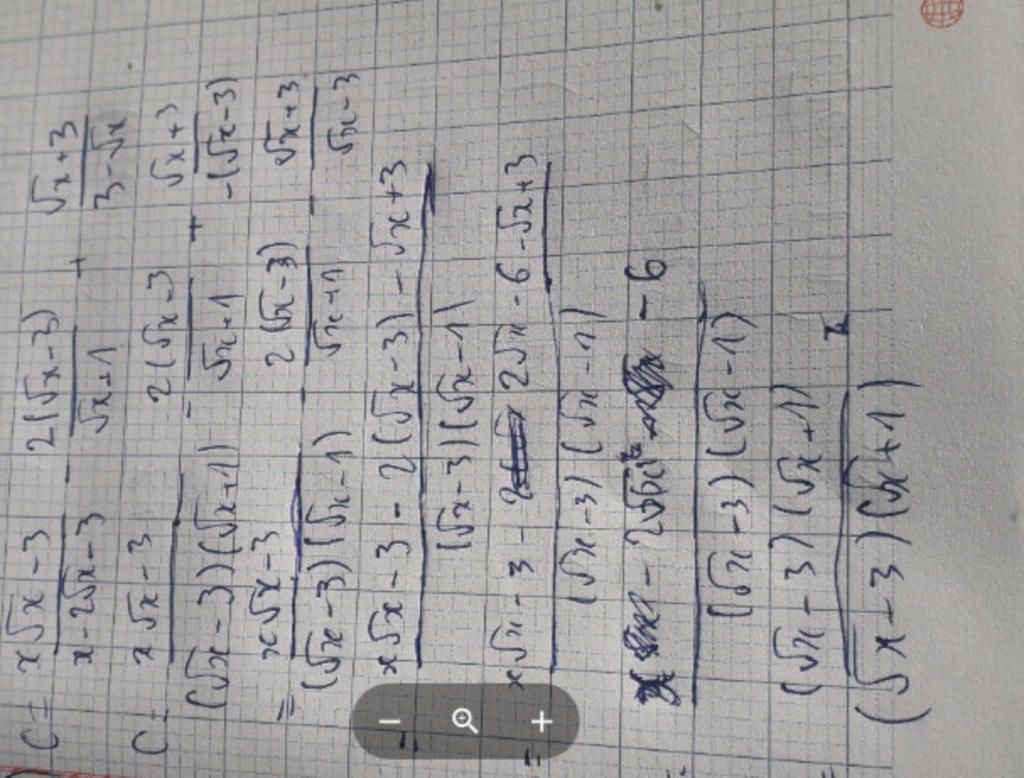 C = x√x - 3 / x - 2√x - 3 - 2(√x - 3) / √x + 1 + √x + 3 / 3 - √x
C = x√x - 3 / (√x - 3)(√x + 1) - 2(√x - 3) / √x + 1 + √x + 3 / -(√x - 3)
= x√x - 3 / (√x - 3)(√x - 1) - 2(√x - 3) / √x + 1 - √x + 3 / √x - 3
= x√x - 3 - 2(√x - 3) - √x + 3 / (√x - 3)(√x - 1)
= x√x - 3 - 2√x - 6 - √x + 3 / (√x - 3)(√x - 1)
- 6 / (√x - 3)(√x - 1)
= (√x - 3)(√x + 1)² / (√x - 3)(√x + 1)